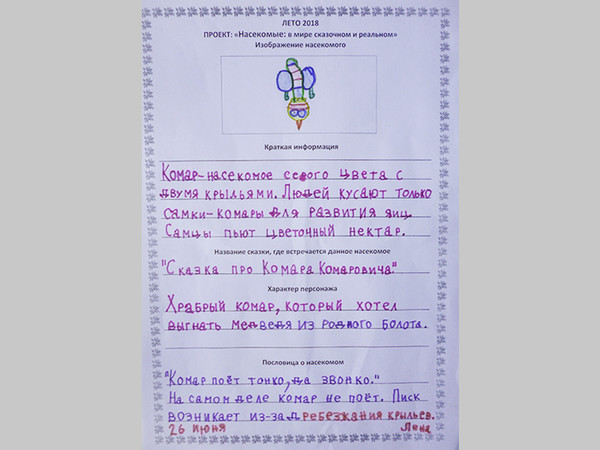 ЛЕТО 2018
ПРОЕКТ: «Насекомые: в мире сказочном и реальном»
Изображение насекомого
Краткая информация
Комар-насекомое серого цвета с
двумя крыльями. Людей кусают только
самки-комары для развития яиц.
Самцы пьют цветочный нектар.
Название сказки, где встречается данное насекомое
"Сказка про Комара Комаровича."
Характер персонажа
Храбрый комар, который хотел
выгнать медведя из родного болота.
Пословица о насекомом
"Комар поёт тонко, да звонко."
На самом деле комар не поёт. Писк
возникает из-за дребезжания крыльев.
26 июня Лена